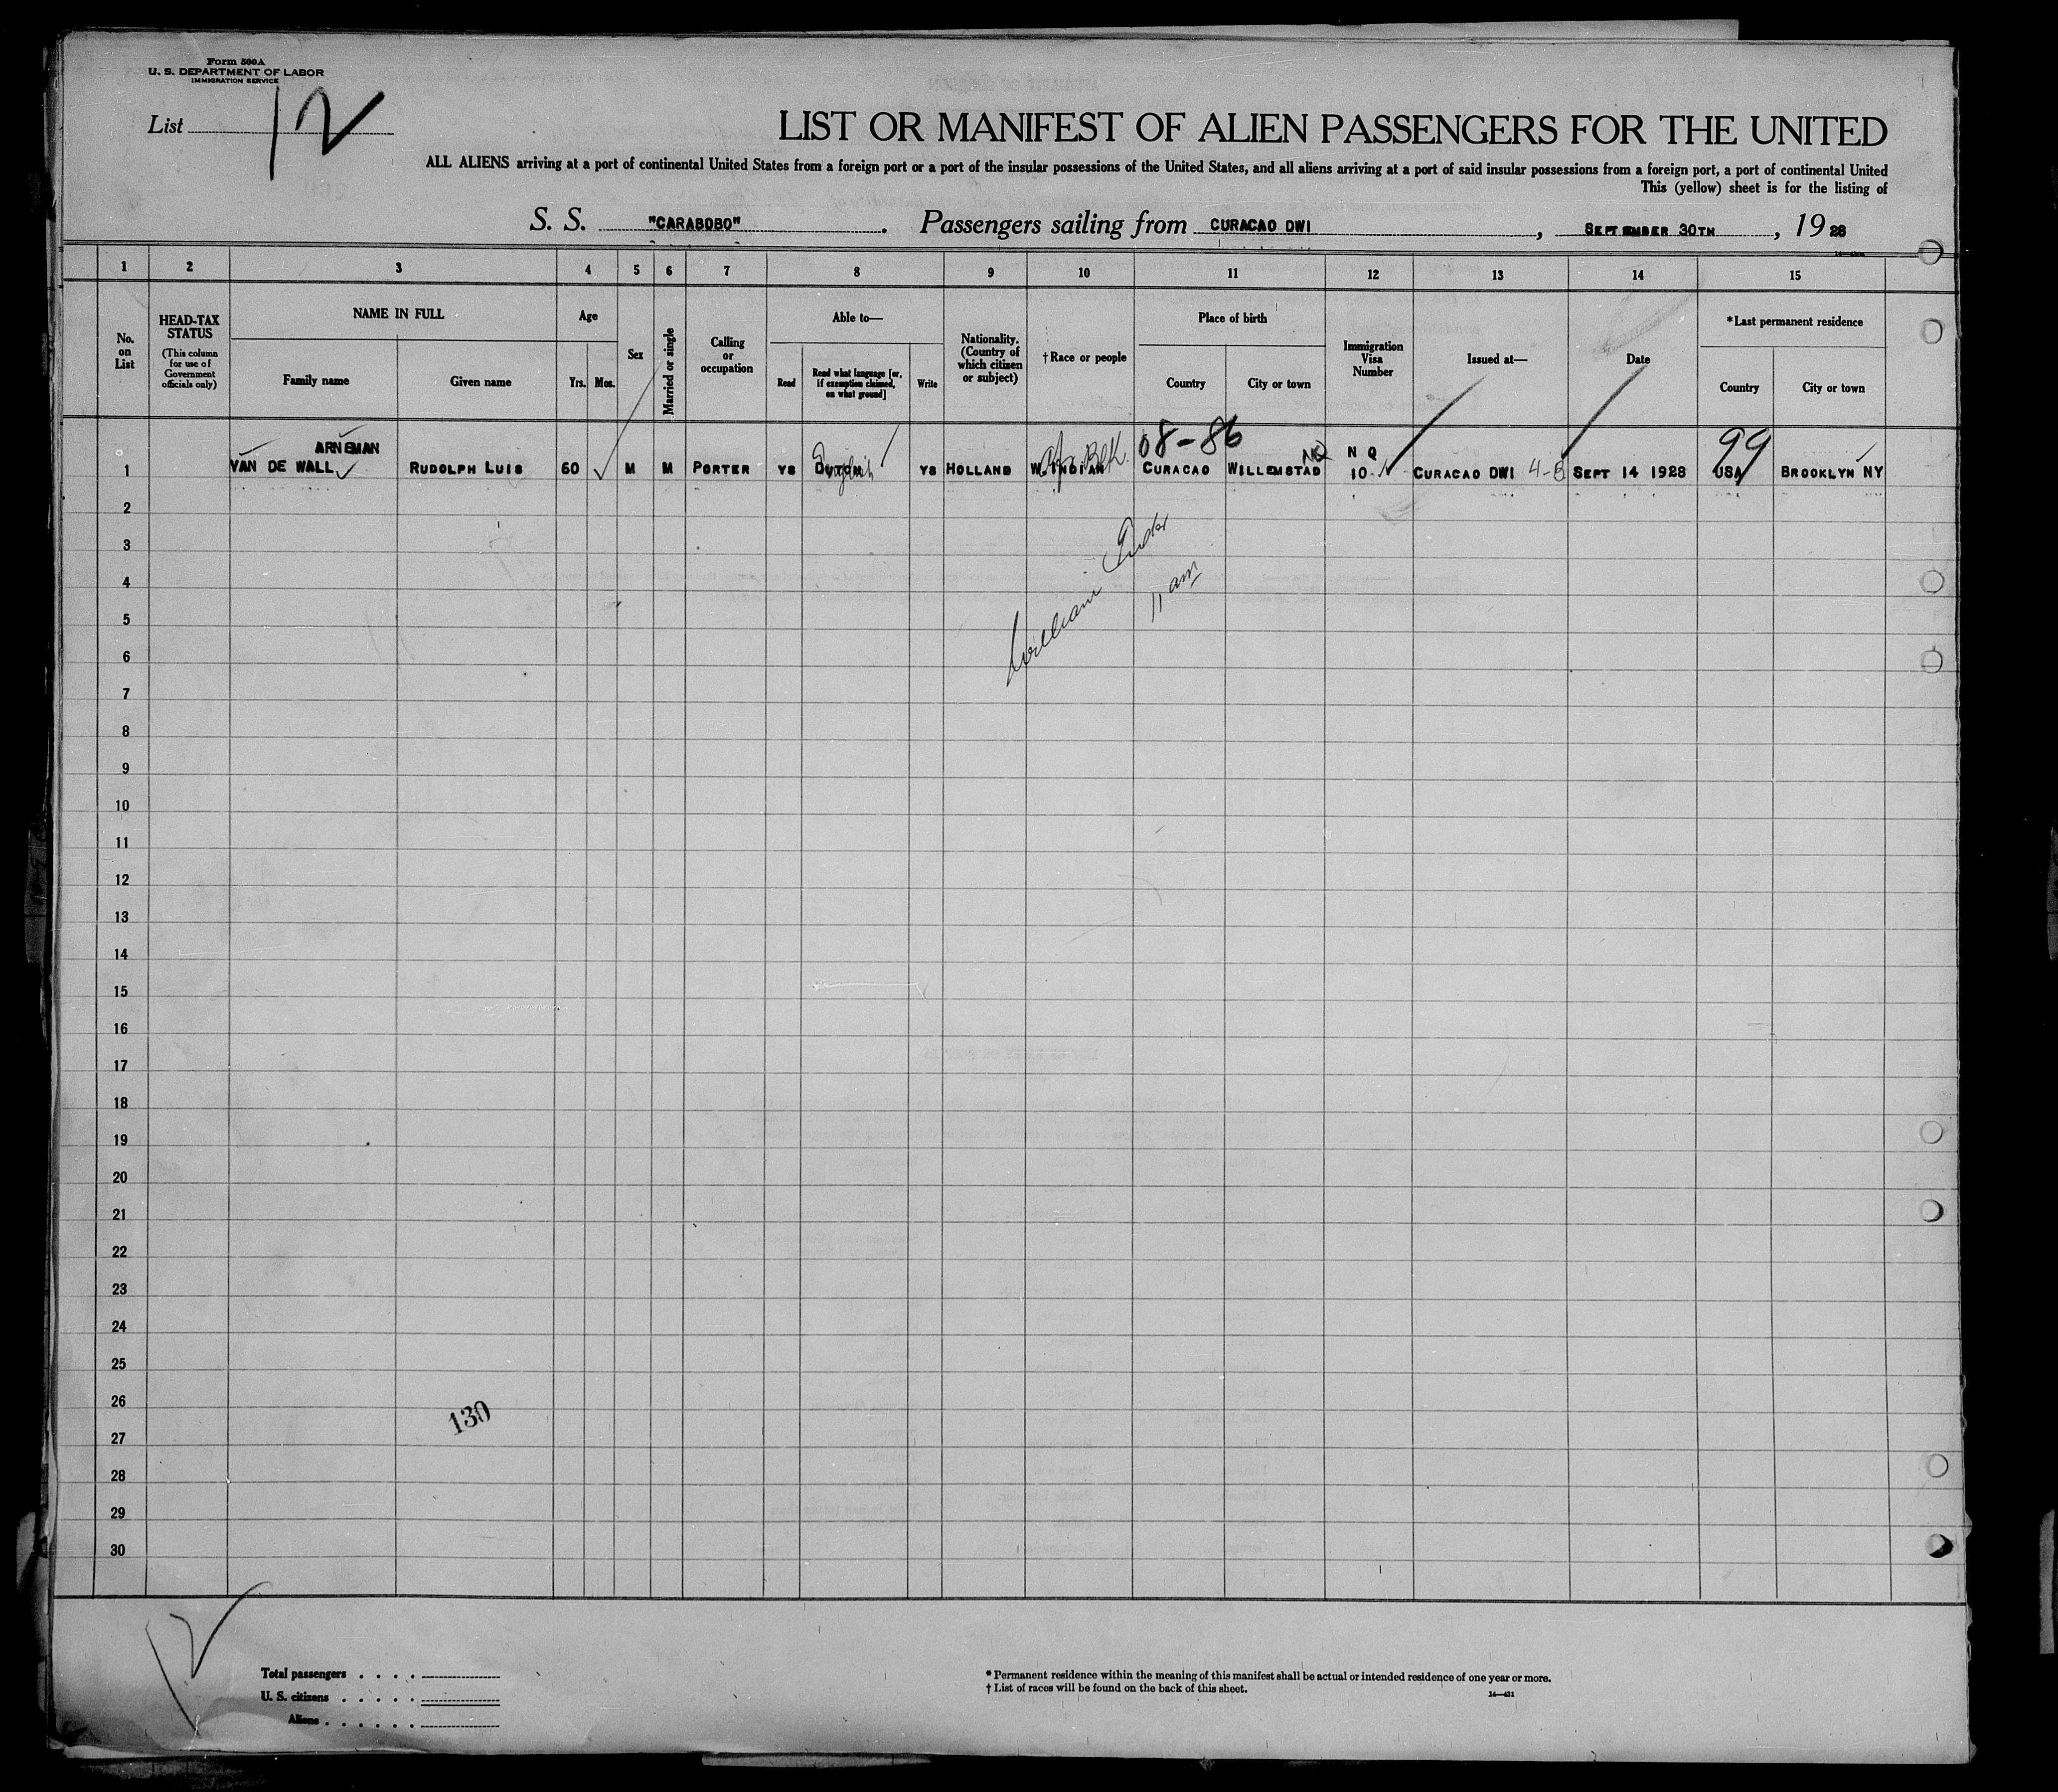 Form 500A
U. S. DEPARTMENT OF LABOR
IMMIGRATION SERVICE
List 12
LIST OR MANIFEST OF ALIEN PASSENGERS FOR THE UNITED
ALL ALIENS arriving at a port of continental United States from a foreign port or a port of the insular possessions of the United States, and all aliens arriving at a port of said insular possessions from a foreign port, a port of continental United
This (yellow) sheet is for the listing of
S. S. "CARABOBO". Passengers sailing from CURACAO DWI, SEPTEMBER 30TH, 1928
1 2 3 4 5 6 7 8 9 10 11 12 13 14 15
No. on List
HEAD-TAX STATUS
(This column for use of Government officials only)
NAME IN FULL
Family name Given name
Age
Yrs. Mos.
Sex
Married or single
Calling or occupation
Able to—
Read
Read what language [or, if exemption claimed, on what ground]
Write
Nationality. (Country of which citizen or subject)
†Race or people
Place of birth
Country City or town
Immigration Visa Number
Issued at—
Date
*Last permanent residence
Country City or town
ARNEMAN 08-86 NQ N Q 99
1 VAN DE WALL RUDOLPH LUIS 60 M M PORTER YS DUTCH English YS HOLLAND W.INDIAN Afr. Blk. CURACAO WILLEMSTAD 10 CURACAO DWI SEPT 14 1928 USA BROOKLYN NY
2
3
William
11 am
4
5
6
7
8
9
10
11
12
13
14
15
16
17
18
19
20
21
22
23
24
25
26
130
27
28
29
30
12
Total passengers . . . .
U. S. citizens . . . . .
Aliens . . . . . .
* Permanent residence within the meaning of this manifest shall be actual or intended residence of one year or more.
† List of races will be found on the back of this sheet.
14—431